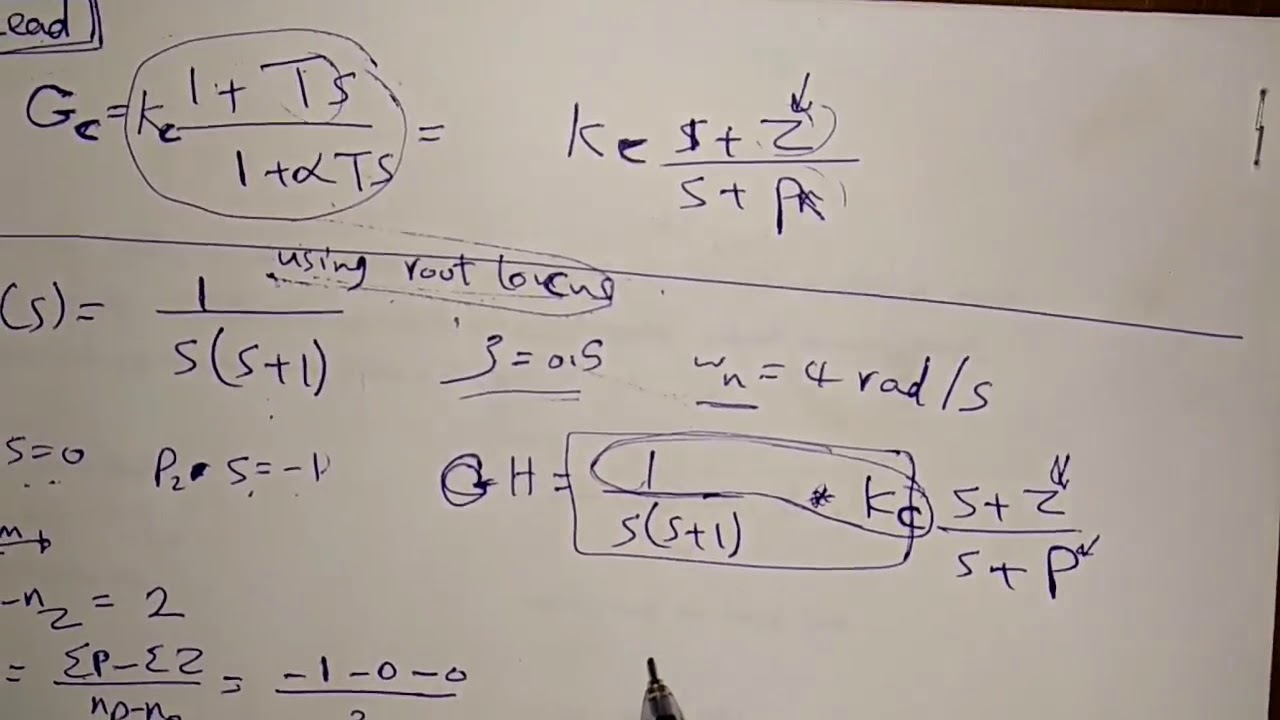 Lead
Gc = Kc (1 + TS) / (1 + αTS) = Kc (s + Z) / (s + P)
using root locus
(s) = 1 / (s(s+1))   ζ = 0.5   ωn = 4 rad/s
s = 0   P2 s = -1   GH = 1 / (s(s+1)) * Kc (s + Z) / (s + P)
-nz = 2
= (ΣP - ΣZ) / (nP - n = (-1 - 0 - 0) /